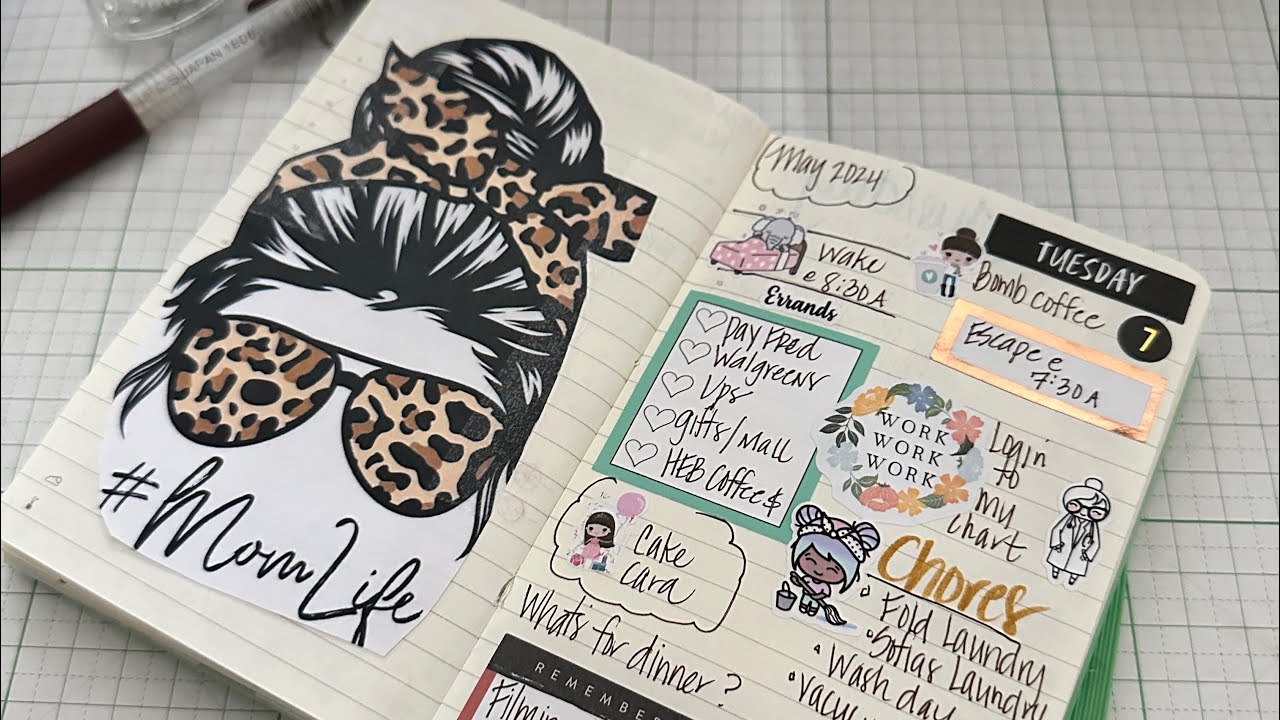 JAPAN
#MomLife
May 2024
TUESDAY
7
Wake
e 8:30A
Bomb coffee
Escape e
7:30 A
Errands
Day Fred
Walgreens
Ups
gifts/Mall
HEB Coffee &
WORK
WORK
WORK
Login
to
my
chart
Cake
Cara
Chores
Fold Laundry
Sofias Laundry
Wash day
Vacu
Whats for dinner?
REMEMBER
Filmin